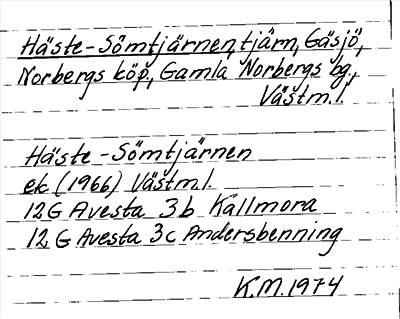 Häste-Sömtjärnen, tjärn, Gäsjö,
Norbergs köp., Gamla Norbergs bg.,
Västm.l.
Häste-Sömtjärnen
ek (1966) Västm.l.
12G Avesta 3b Källmora
12G Avesta 3c Andersbenning
K.M. 1974